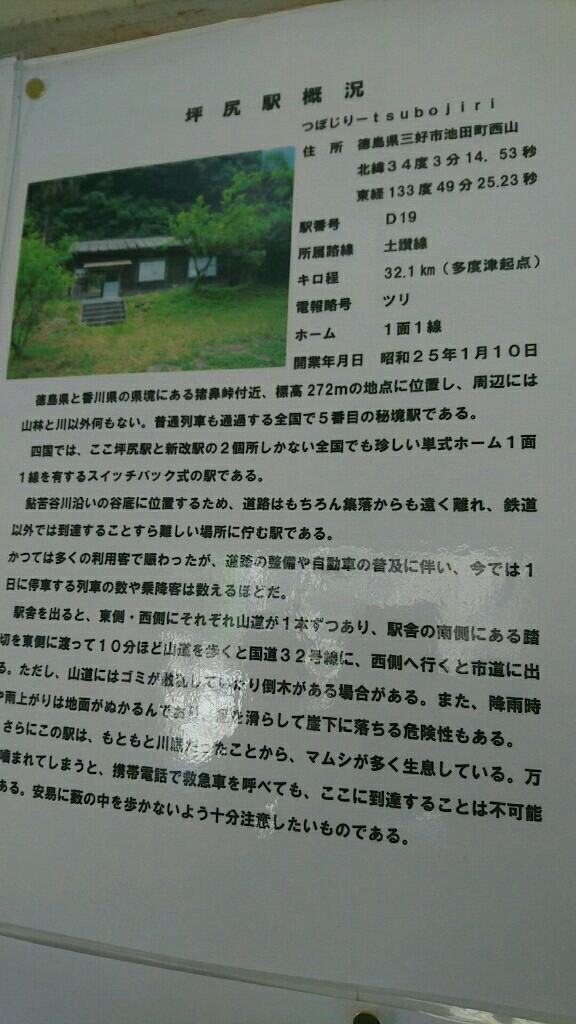 坪尻駅概況
つぼじりーtsubojiri
住所 徳島県三好市池田町西山
北緯34度3分14.53秒
東経133度49分25.23秒
駅番号 D19
所属路線 土讃線
キロ程 32.1km(多度津起点)
電報略号 ツリ
ホーム 1面1線
開業年月日 昭和25年1月10日
徳島県と香川県の県境にある猪鼻峠付近、標高272mの地点に位置し、周辺には
山林と川以外何もない。普通列車も通過する全国で5番目の秘境駅である。
四国では、ここ坪尻駅と新改駅の2個所しかない全国でも珍しい単式ホーム1面
1線を有するスイッチバック式の駅である。
鮎苦谷川沿いの谷底に位置するため、道路はもちろん集落からも遠く離れ、鉄道
以外では到達することすら難しい場所に佇む駅である。
かつては多くの利用客で賑わったが、道路の整備や自動車の普及に伴い、今では1
日に停車する列車の数や乗降客は数えるほどだ。
駅舎を出ると、東側・西側にそれぞれ山道が1本ずつあり、駅舎の南側にある踏
切を東側に渡って10分ほど山道を歩くと国道32号線に、西側へ行くと市道に出
る。ただし、山道にはゴミが散乱していたり倒木がある場合がある。また、降雨時
や雨上がりは地面がぬかるんでおり、足を滑らして崖下に落ちる危険性もある。
さらにこの駅は、もともと川底だったことから、マムシが多く生息している。万
噛まれてしまうと、携帯電話で救急車を呼べても、ここに到達することは不可能
ある。安易に藪の中を歩かないよう十分注意したいものである。